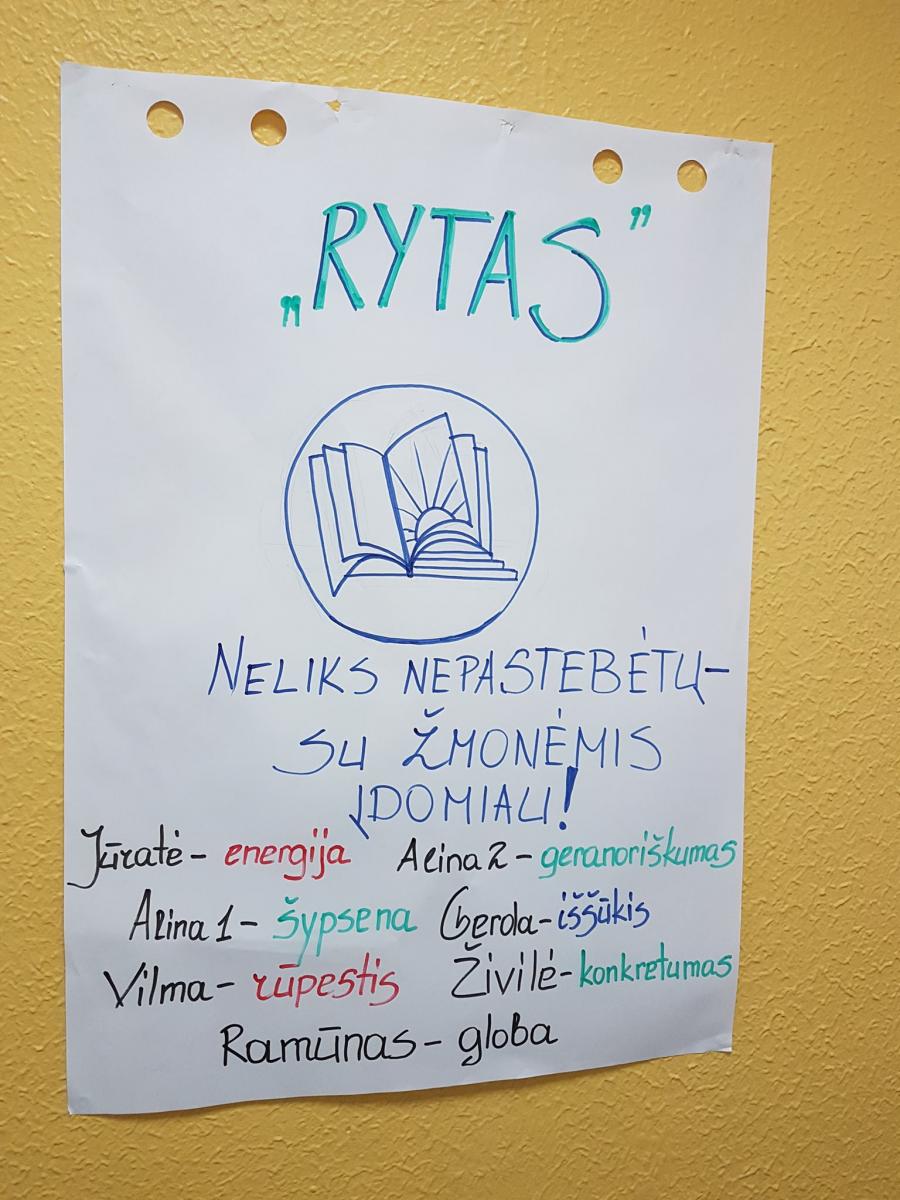 „RYTAS”
NELIKS NEPASTEBĖTŲ-
SU ŽMONĖMIS
ĮDOMIAU!
Jūratė - energija Alina 2 - geranoriškumas
Alina 1 - šypsena Gerda - iššūkis
Vilma - rūpestis Živilė - konkretumas
Ramūnas - globa